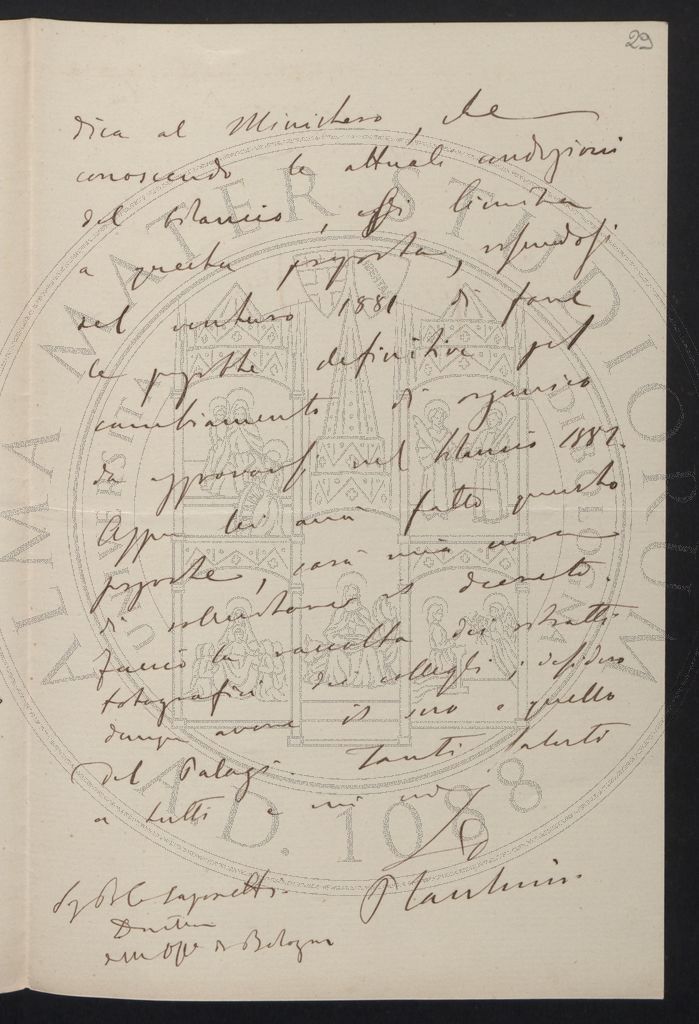 29
dica al Ministero, che
conoscendo le attuali condizioni
del bilancio, ella si limita
a questa proposta, riservandosi
nel venturo 1881 di fare
le proposte definitive pel
cambiamento di organico
da approvarsi nel bilancio 1882.
Appena lei avrà fatto queste
proposte, sarà mia cura
di sollecitare il decreto.
Faccio la raccolta dei ritratti
fotografici dei colleghi; desidero
dunque avere il suo e quello
del Palagi. Tanti saluti
a tutti e mi
Tacchini
Sig. Prof. Saporetti
Direttore
dell'Oss. di Bologna
ALMA MATER STUDIORUM
A.D. 1088